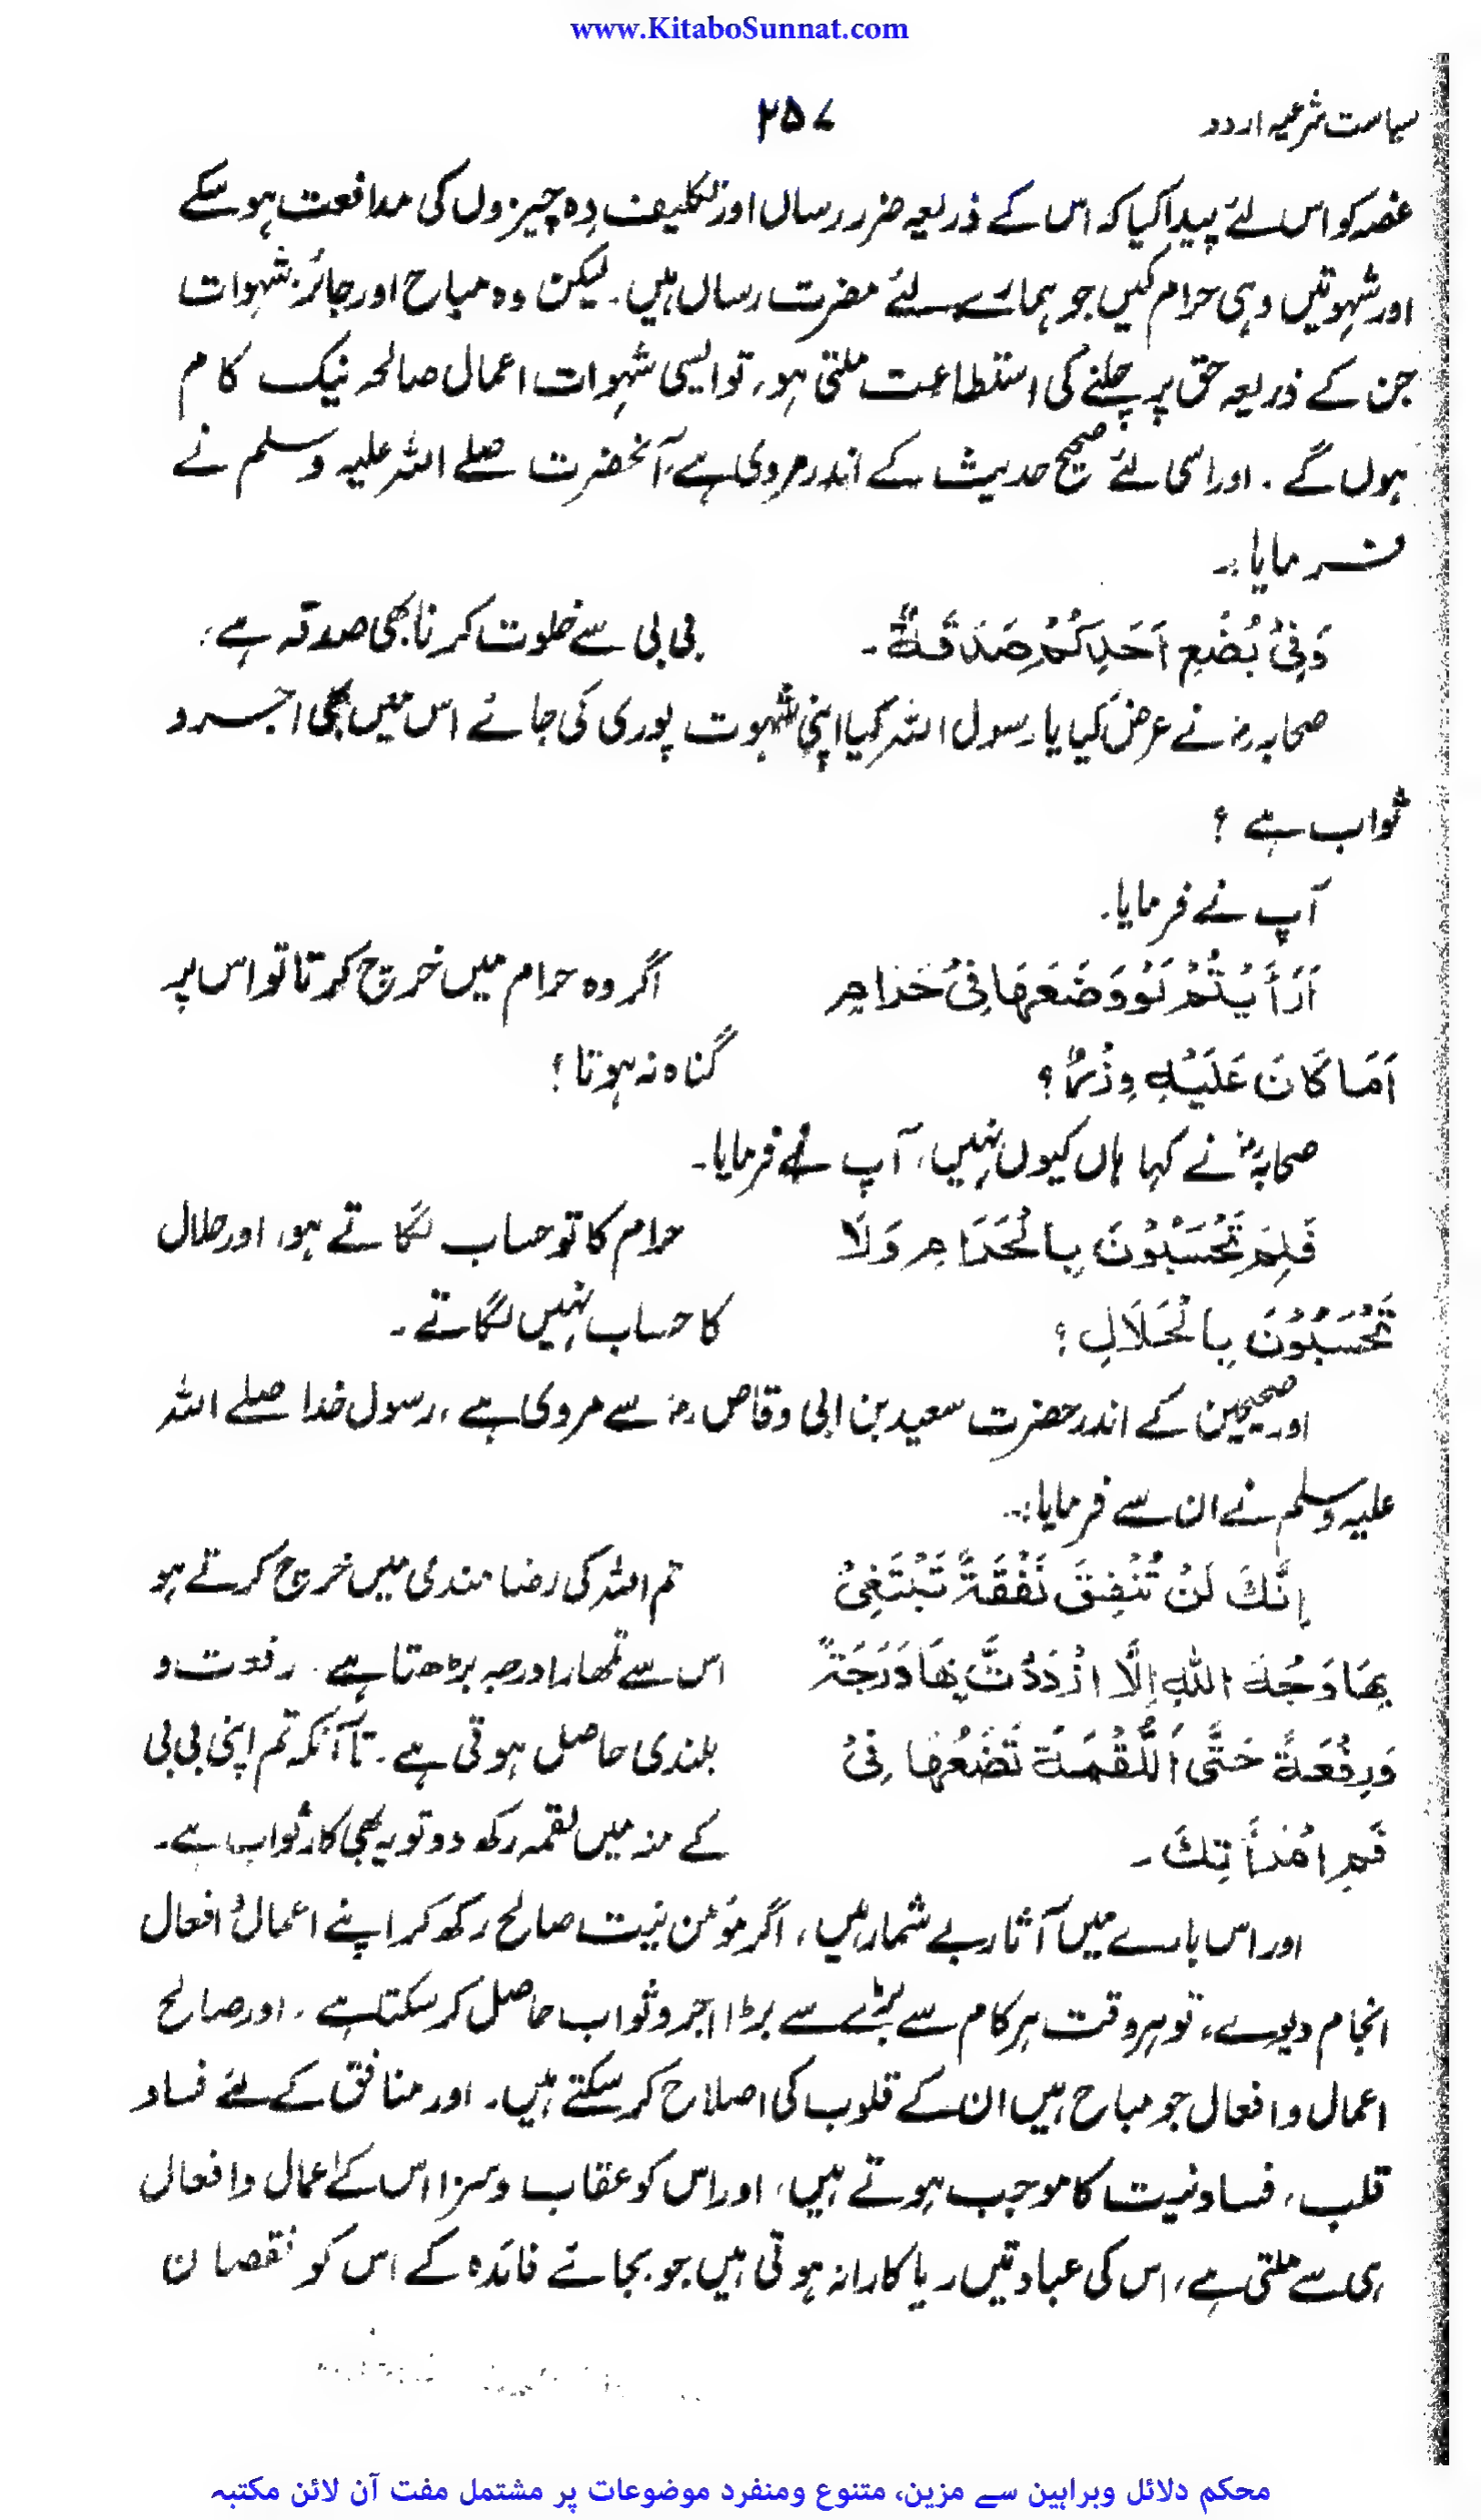 www.KitaboSunnat.com
سیاست شرعیہ اردو
۲۵۷
غصہ کو اس لئے پیدا کیا کہ اس کے ذریعہ ضرر رساں اور تکلیف دہ چیزوں کی مدافعت ہو سکے
اور شہوتیں وہی حرام کیں جو ہمارے لئے مضرت رساں ہیں۔ لیکن وہ مباح اور جائز شہوات
جن کے ذریعہ حق پر چلنے کی استطاعت ملتی ہو، تو ایسی شہوات اعمال صالحہ نیک کام
ہوں گے۔ اور اسی لئے صحیح حدیث کے اندر مروی ہے، آنحضرت صلے اللہ علیہ وسلم نے
فرمایا:۔
وَفِیْ بُضْعِ اَحَدِکُمْ صَدَقَةٌ۔
بی بی سے خلوت کرنا بھی صدقہ ہے،
صحابہ رضؓ نے عرض کیا یا رسول اللہ کیا اپنی شہوت پوری کی جائے اس میں بھی اجر و
ثواب ہے ؟
آپ نے فرمایا۔
اَرَأَیْتُمْ لَوْ وَضَعَهَا فِیْ حَرَامٍ
اگر وہ حرام میں خرچ کرتا تو اس پر
اَمَا کَانَ عَلَیْهِ وِزْرٌ؟
گناہ نہ ہوتا؟
صحابہؓ نے کہا ہاں کیوں نہیں، آپ نے فرمایا۔
فَلِمَ تَحْسَبُوْنَ بِالْحَرَامِ وَلَا
حرام کا تو حساب لگاتے ہو، اور حلال
تَحْسَبُوْنَ بِالْحَلَالِ ؟
کا حساب نہیں لگاتے۔
اور صحیحین کے اندر حضرت سعید بن ابی وقاص رضؓ سے مروی ہے، رسول خدا صلے اللہ
علیہ وسلم نے ان سے فرمایا:۔
اِنَّكَ لَنْ تُنْفِقَ نَفْقَةً تَبْتَغِیْ
تم اللہ کی رضا مندی میں خرچ کرتے ہو
بِهَا وَجْهَ اللهِ اِلَّا ازْدَدْتَّ بِهَا دَرَجَةً
اس سے تمہارا درجہ بڑھتا ہے۔ رفعت و
وَرِفْعَةً حَتَّی اَللُّقْمَةَ تَضَعُهَا فِیْ
بلندی حاصل ہوتی ہے۔ تا آنکہ تم اپنی بی بی
فَمِ امْرَأَتِكَ۔
کے منہ میں لقمہ رکھ دو تو یہ بھی کار ثواب ہے۔
اور اس بارے میں آثار بے شمار ہیں، اگر مؤمن نیت صالح رکھ کر اپنے اعمال و افعال
انجام دیوے، تو ہر وقت ہر کام سے بڑے سے بڑا اجر و ثواب حاصل کر سکتا ہے۔ اور صالح
اعمال و افعال جو مباح ہیں ان کے قلوب کی اصلاح کر سکتے ہیں۔ اور منافق کے لئے فساد
قلب، فساد نیت کا موجب ہوتے ہیں، اور اس کو عقاب و سزا اس کے اعمال و افعال
ہی سے ملتی ہے، اس کی عبادتیں ریاکارانہ ہوتی ہیں جو بجائے فائدہ کے اس کو نقصان
محکم دلائل وبراہین سے مزین، متنوع ومنفرد موضوعات پر مشتمل مفت آن لائن مکتبہ